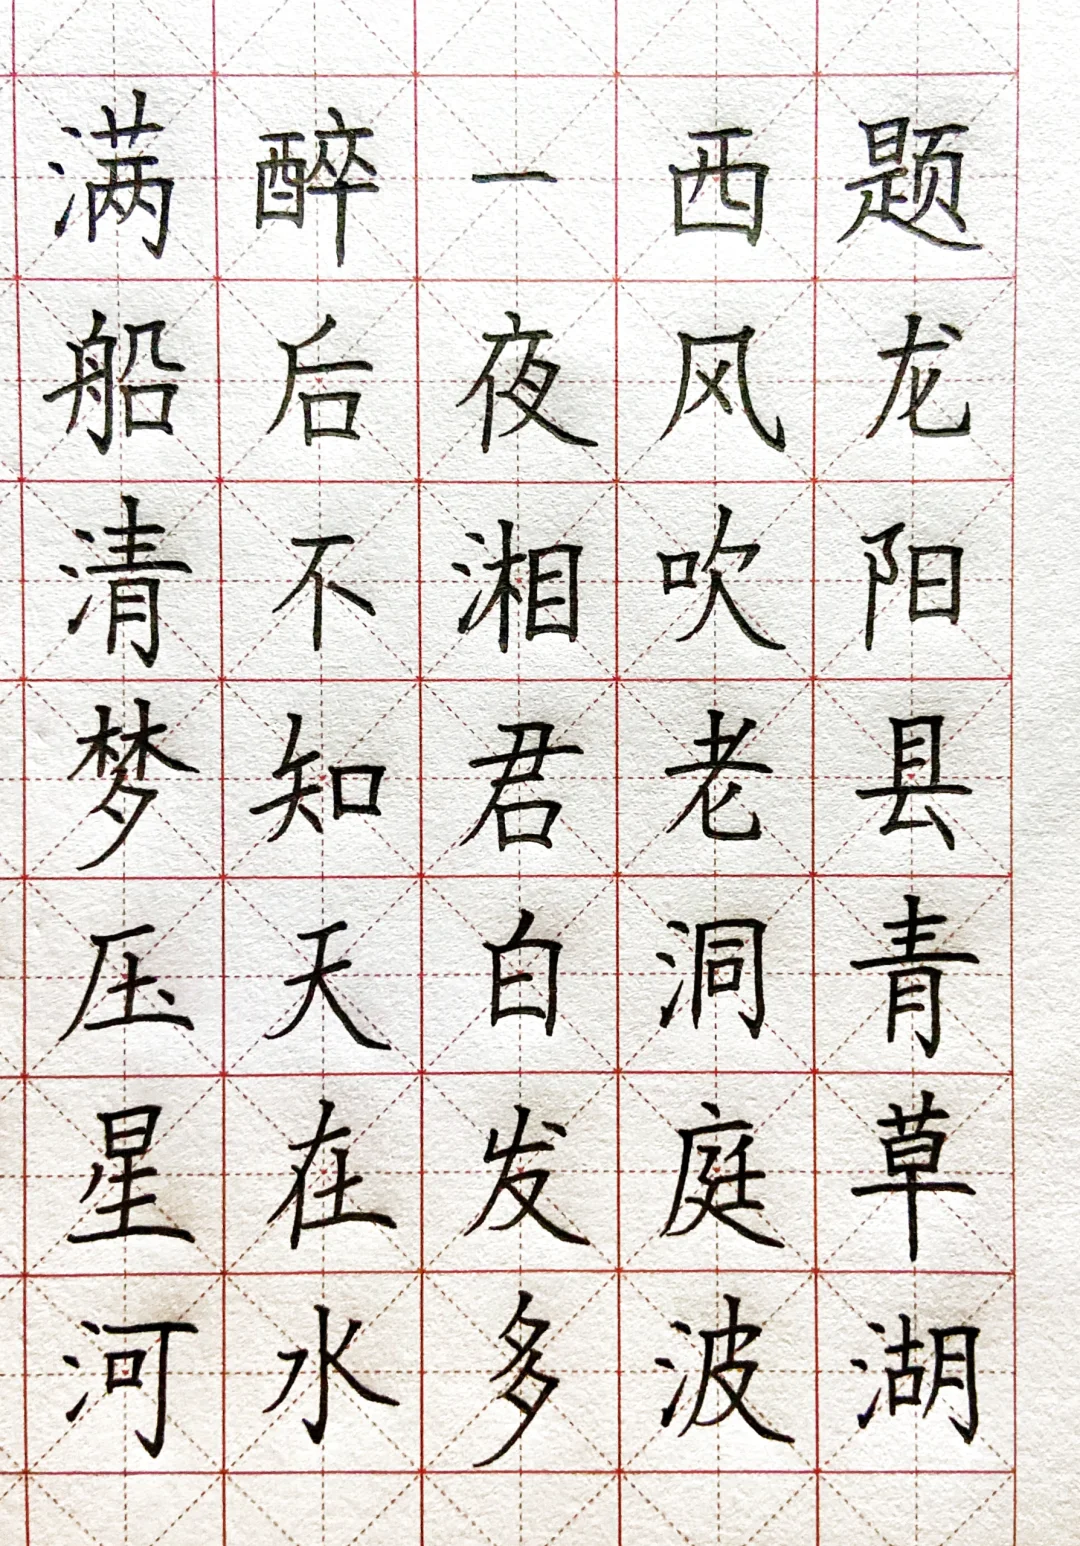 题龙阳县青草湖
西风吹老洞庭波
一夜湘君白发多
醉后不知天在水
满船清梦压星河